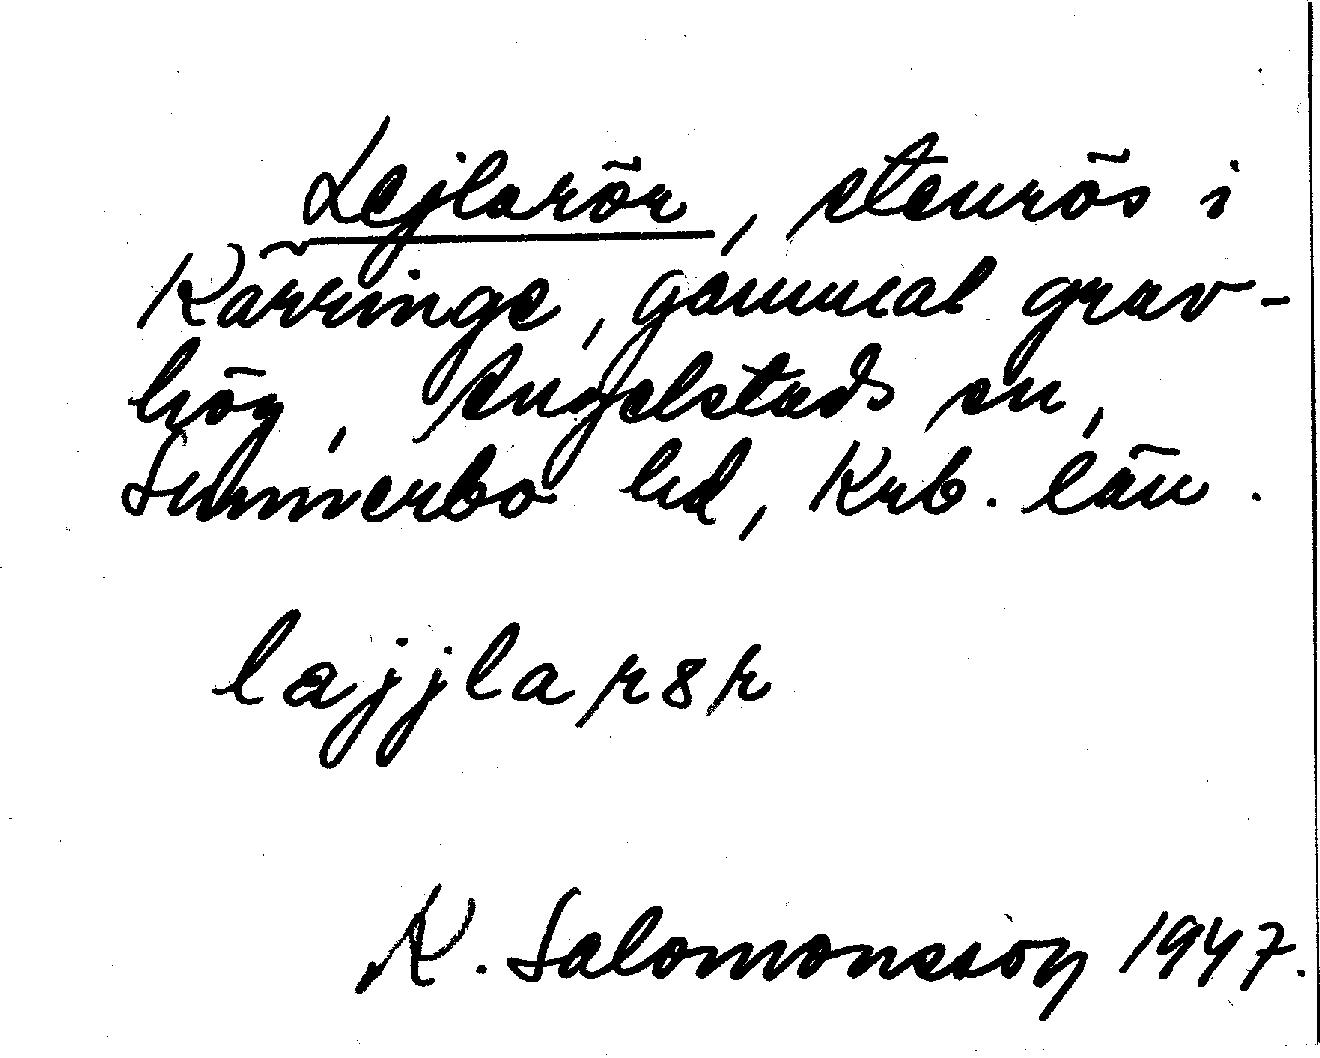 Lejlarör, stenrös i
Kärringe, gammal grav-
hög, Angelstads sn,
Sunnerbo hd, Krb. län.
lajjlarör
K. Salomonsson 1947.